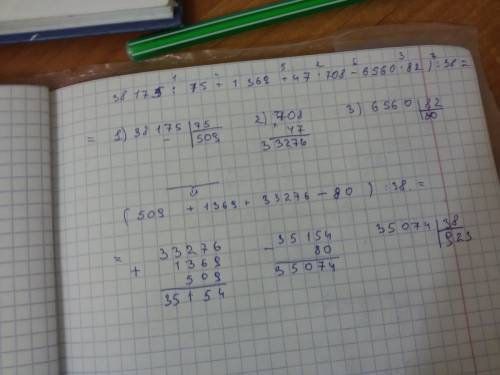 38175 : 75 + 1369 + 47 · 708 - 6560 : 82) : 38 =
= 1) 38175 | 75
509
2) 708
47
33276
3) 6560 | 82
80
(509 + 1369 + 33276 - 80) : 38 =
=
+ 33276
1369
509
35154
- 35154
80
35074
35074 | 38
923